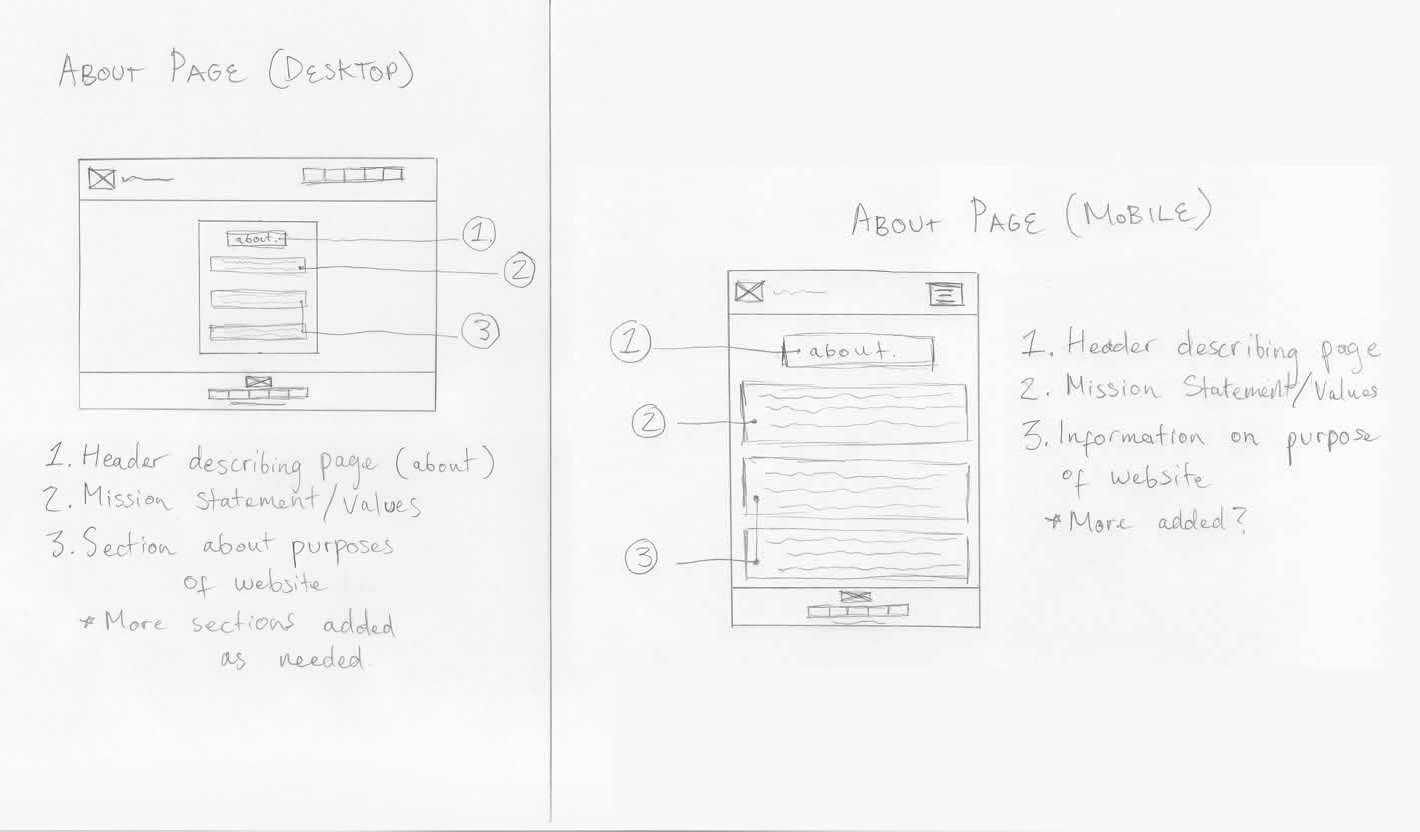 ABOUT PAGE (DESKTOP)
about.
1.
2
3
1. Header describing page (about)
2. Mission Statement/Values
3. Section about purposes
of website
* More sections added
as needed
ABOUT PAGE (MOBILE)
1
about.
2
3
1. Header describing page
2. Mission Statement/Values
3. Information on purpose
of website
* More added?